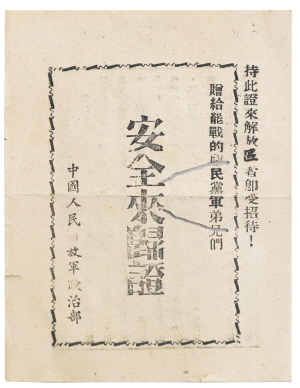 持此證來解放區者卽受招待！
贈給罷戰的國民黨軍弟兄們
安全來歸證
中國人民 放軍政治部